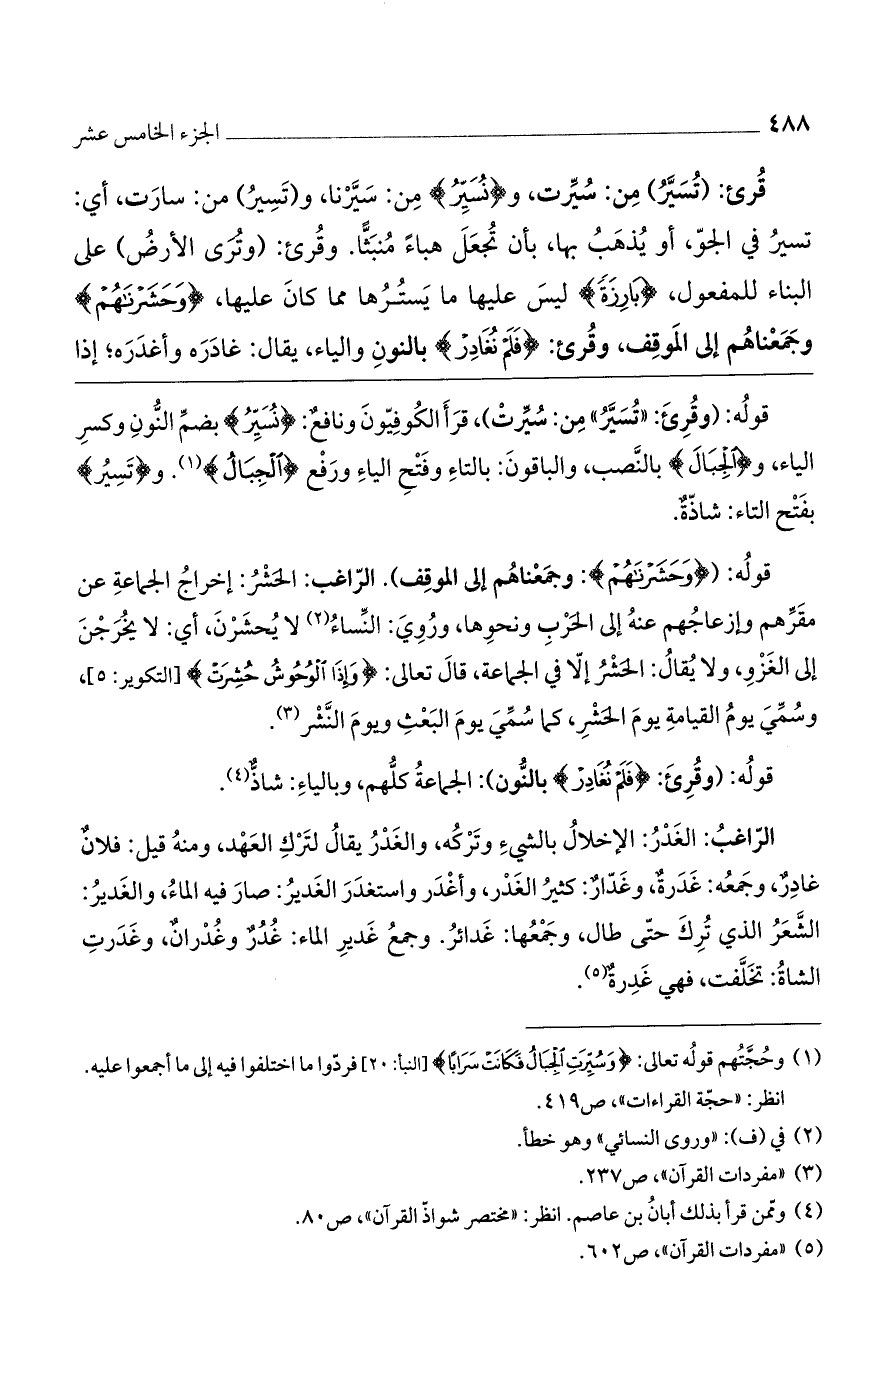 ٤٨٨ ـــــــــــــــــــ الجزء الخامس عشر
قُرئ: (تُسَيَّرُ) مِن: سُيِّرت، و﴿نُسَيِّرُ﴾ مِن: سَيَّرْنا، و(تَسِيرُ) من: سارَت، أي:
تسيرُ في الجوّ، أو يُذهَبُ بها، بأن تُجعَلَ هباءً مُنبَثًّا. وقُرئ: (وتُرَى الأرضُ) على
البناء للمفعول، ﴿بَارِزَةً﴾ ليسَ عليها ما يَستُـرُها مما كانَ عليها، ﴿وَحَشَرْنَٰهُمْ﴾
وجَمَعْناهُم إلى المَوقِف، وقُرئ: ﴿فَلَمْ نُغَادِرْ﴾ بالنونِ والياء، يقال: غادَرَه وأغدَرَه؛ إذا
قولُه: (وقُرِئَ: «تُسَيَّرُ» مِن: سُيِّرتْ)، قرَأَ الكُوفيّونَ ونافعٌ: ﴿نُسَيِّرُ﴾ بضمِّ النُّونِ وكسرِ
الياء، و﴿ٱلْجِبَالَ﴾ بالنَّصب، والباقونَ: بالتاءِ وفَتْحِ الياءِ ورَفْع ﴿ٱلْجِبَالُ﴾(١). و﴿تَسِيرُ﴾
بفَتْح التاء: شاذّةٌ.
قولُه: (﴿وَحَشَرْنَٰهُمْ﴾: وجَمَعْناهُم إلى الموقِف). الرّاغب: الحَشْرُ: إخراجُ الجماعةِ عن
مقَرِّهم وإزعاجُهم عنهُ إلى الحَرْبِ ونحوِها، ورُوِيَ: النِّساءُ(٢) لا يُحشَرْنَ، أي: لا يَخْرُجْنَ
إلى الغَزْوِ، ولا يُقالُ: الحَشْرُ إلّا في الجماعة، قالَ تعالى: ﴿وَإِذَا ٱلْوُحُوشُ حُشِرَتْ﴾ [التكوير: ٥]،
وسُمِّيَ يومُ القيامةِ يومَ الحَشْرِ، كما سُمِّيَ يومَ البَعْثِ ويومَ النَّشْر(٣).
قولُه: (وقُرِئَ: ﴿فَلَمْ نُغَادِرْ﴾ بالنُّون): الجماعةُ كلُّهم، وبالياءِ: شاذٌّ(٤).
الرّاغبُ: الغَدْرُ: الإخلالُ بالشيءِ وتَرْكُه، والغَدْرُ يقالُ لتَرْكِ العَهْد، ومنهُ قيل: فلانٌ
غادِرٌ، وجَمعُه: غَدَرةٌ، وغَدّارٌ: كثيرُ الغَدْر، وأغْدَر واستغدَرَ الغَديرُ: صارَ فيه الماءُ، والغَديرُ:
الشَّعَرُ الذي تُرِكَ حتّى طال، وجَمْعُها: غَدائرُ. وجمعُ غَديرِ الماء: غُدُرٌ وغُدْرانٌ، وغَدَرتِ
الشاةُ: تخَلَّفت، فهي غَدِرةٌ(٥).
(١) وحُجَّتُهم قولُه تعالى: ﴿وَسُيِّرَتِ ٱلْجِبَالُ فَكَانَتْ سَرَابًا﴾ [النبأ: ٢٠] فردّوا ما اختلفوا فيه إلى ما أجمعوا عليه.
انظر: «حجّة القراءات»، ص٤١٩.
(٢) في (ف): «وروى النسائي» وهو خطأ.
(٣) «مفردات القرآن»، ص٢٣٧.
(٤) وممّن قرأ بذلك أبانُ بن عاصم. انظر: «مختصر شواذّ القرآن»، ص٨٠.
(٥) «مفردات القرآن»، ص٦٠٢.